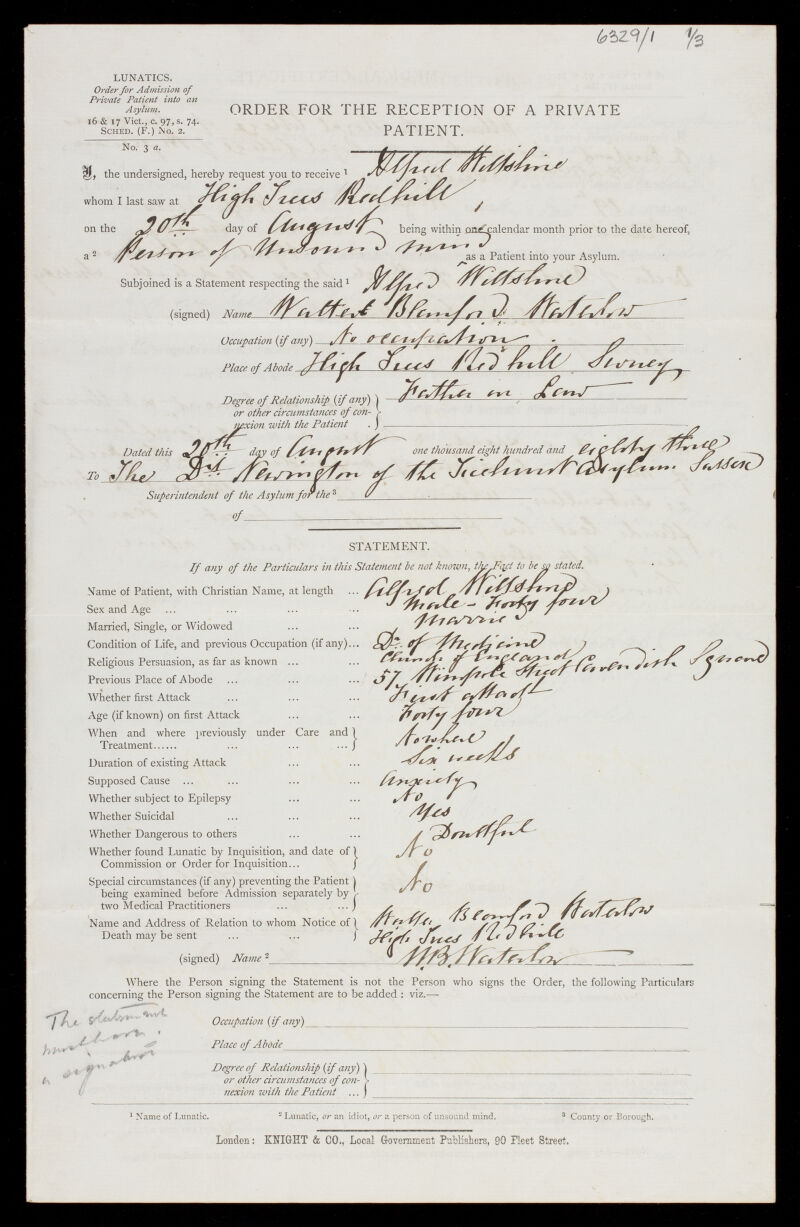 6329/1 1/3
LUNATICS.
Order for Admission of
Private Patient into an
Asylum.
16 & 17 Vict., c. 97, s. 74.
SCHED. (F.) No. 2.
No. 3 a.
ORDER FOR THE RECEPTION OF A PRIVATE
PATIENT.
I, the undersigned, hereby request you to receive ¹ Alfred Wiltshire
whom I last saw at High Trees Redhill
on the 20th day of August being within one calendar month prior to the date hereof,
a ² Person of Unsound mind as a Patient into your Asylum.
Subjoined is a Statement respecting the said ¹ Alfred Wiltshire
(signed) Name Walter Blanford Waterlow
Occupation (if any) No occupation
Place of Abode High Trees Redhill Surrey
Degree of Relationship (if any) Father in Law
or other circumstances of con-
nexion with the Patient .
Dated this 20th day of August one thousand eight hundred and eighty three
To The Drs Newington of the Ticehurst Asylum Sussex
Superintendent of the Asylum for the ³
of
STATEMENT.
If any of the Particulars in this Statement be not known, the Fact to be so stated.
Name of Patient, with Christian Name, at length ... Alfred Wiltshire
Sex and Age ... ... ... ... Male - Forty four
Married, Single, or Widowed ... ... Married
Condition of Life, and previous Occupation (if any)... Dr. of Medicine
Religious Persuasion, as far as known ... ... Church of England
Previous Place of Abode ... ... ... 57 Wimpole Street Cavendish Square
Whether first Attack ... ... ... First attack
Age (if known) on first Attack ... ... Forty four
When and where previously under Care and
Treatment...... ... ... ... Nowhere
Duration of existing Attack ... ... Six weeks
Supposed Cause ... ... ... ... Anxiety
Whether subject to Epilepsy ... ... No
Whether Suicidal ... ... ... Yes
Whether Dangerous to others ... ... Doubtful
Whether found Lunatic by Inquisition, and date of
Commission or Order for Inquisition... No
Special circumstances (if any) preventing the Patient
being examined before Admission separately by
two Medical Practitioners ... ... No
Name and Address of Relation to whom Notice of Walter Blanford Waterlow
Death may be sent ... ... High Trees Redhill
(signed) Name ² W.B. Waterlow
Where the Person signing the Statement is not the Person who signs the Order, the following Particulars
concerning the Person signing the Statement are to be added : viz.—
The statement
must have
a signature
Occupation (if any)
Place of Abode
Degree of Relationship (if any)
or other circumstances of con-
nexion with the Patient ...
¹ Name of Lunatic. ² Lunatic, or an idiot, or a person of unsound mind. ³ County or Borough.
London: KNIGHT & CO., Local Government Publishers, 90 Fleet Street.